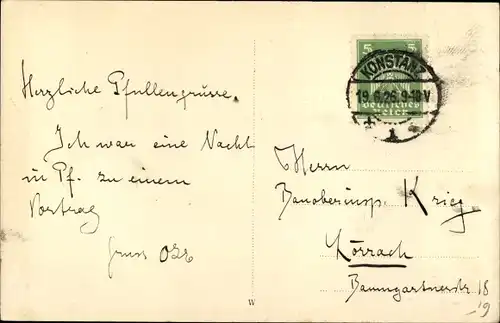 Herzliche Pfullengrüsse.
Ich war eine Nacht
in Pf. zu einem
Vortrag
Gruss
5 5
KONSTANZ
19.6.26.9-10V
Deutsches
Reich
1
Herrn
Bauoberinsp. Krieg
Lörrach
Baumgartnerstr 18
19
W